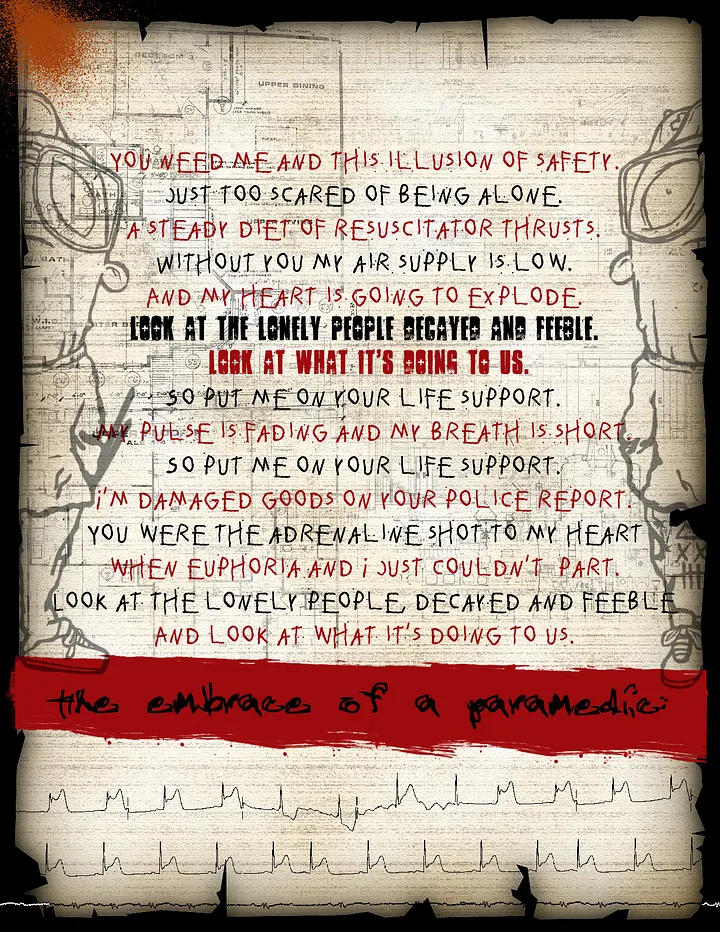 BEDROOM 3
UPPER DINING
YOU NEED ME AND THIS ILLUSION OF SAFETY.
JUST TOO SCARED OF BEING ALONE.
A STEADY DIET OF RESUSCITATOR THRUSTS.
WITHOUT YOU MY AIR SUPPLY IS LOW.
AND MY HEART IS GOING TO EXPLODE.
LOOK AT THE LONELY PEOPLE DECAYED AND FEEBLE.
LOOK AT WHAT IT'S DOING TO US.
SO PUT ME ON YOUR LIFE SUPPORT.
MY PULSE IS FADING AND MY BREATH IS SHORT.
SO PUT ME ON YOUR LIFE SUPPORT.
i'M DAMAGED GOODS ON YOUR POLICE REPORT.
YOU WERE THE ADRENALINE SHOT TO MY HEART
WHEN EUPHORIA AND i JUST COULDN'T PART.
LOOK AT THE LONELY PEOPLE, DECAYED AND FEEBLE
AND LOOK AT WHAT IT'S DOING TO US.
the embrace of a paramedic: